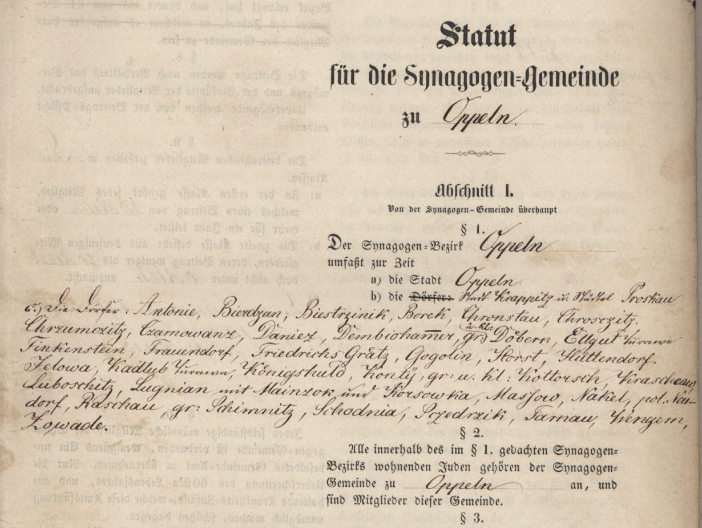 Statut
für die Synagogen-Gemeinde
zu Oppeln.
Abschnitt I.
Von der Synagogen-Gemeinde überhaupt
§ 1.
Der Synagogen-Bezirk Oppeln
umfaßt zur Zeit
a) die Stadt Oppeln
b) die Dörfer: Stadt Krappitz u. Proskau
c.) Die Dörfer: Antonie, Bierdzan, Biestrzinik, Borek, Chronstau, Chrosczitz.
Chrzumczitz, Czarnowanz, Daniez, Dembiohammer, gr: u. kl: Döbern, Ellgut Turawa
Finkenstein, Frauendorf, Friedrichs Grätz, Gogolin, Horst, Hüttendorf.
Jelowa, Kadlub Turawa, Königshuld, Konty, gr: u. kl: Kottorsch, Krascheow,
Luboschitz, Lugnian mit Mainzok und Korsowka, Massow, Nakel, pol. Neu-
dorf, Raschau, gr: Schimnitz, Schodnia, Przedrzik, Tarnau, Wengern,
Zowade.
§ 2.
Alle innerhalb des im § 1. gedachten Synagogen-
Bezirks wohnenden Juden gehören der Synagogen-
Gemeinde zu Oppeln an, und
sind Mitglieder dieser Gemeinde.
§ 3.